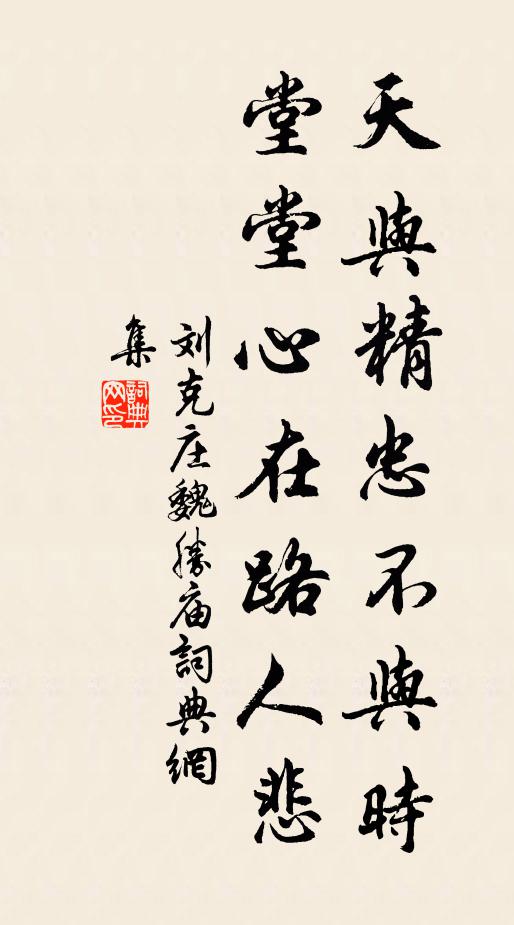 天與精忠不與時
堂堂心在路人悲
刘克庄魏勝庙詞典網
集
詞典网印